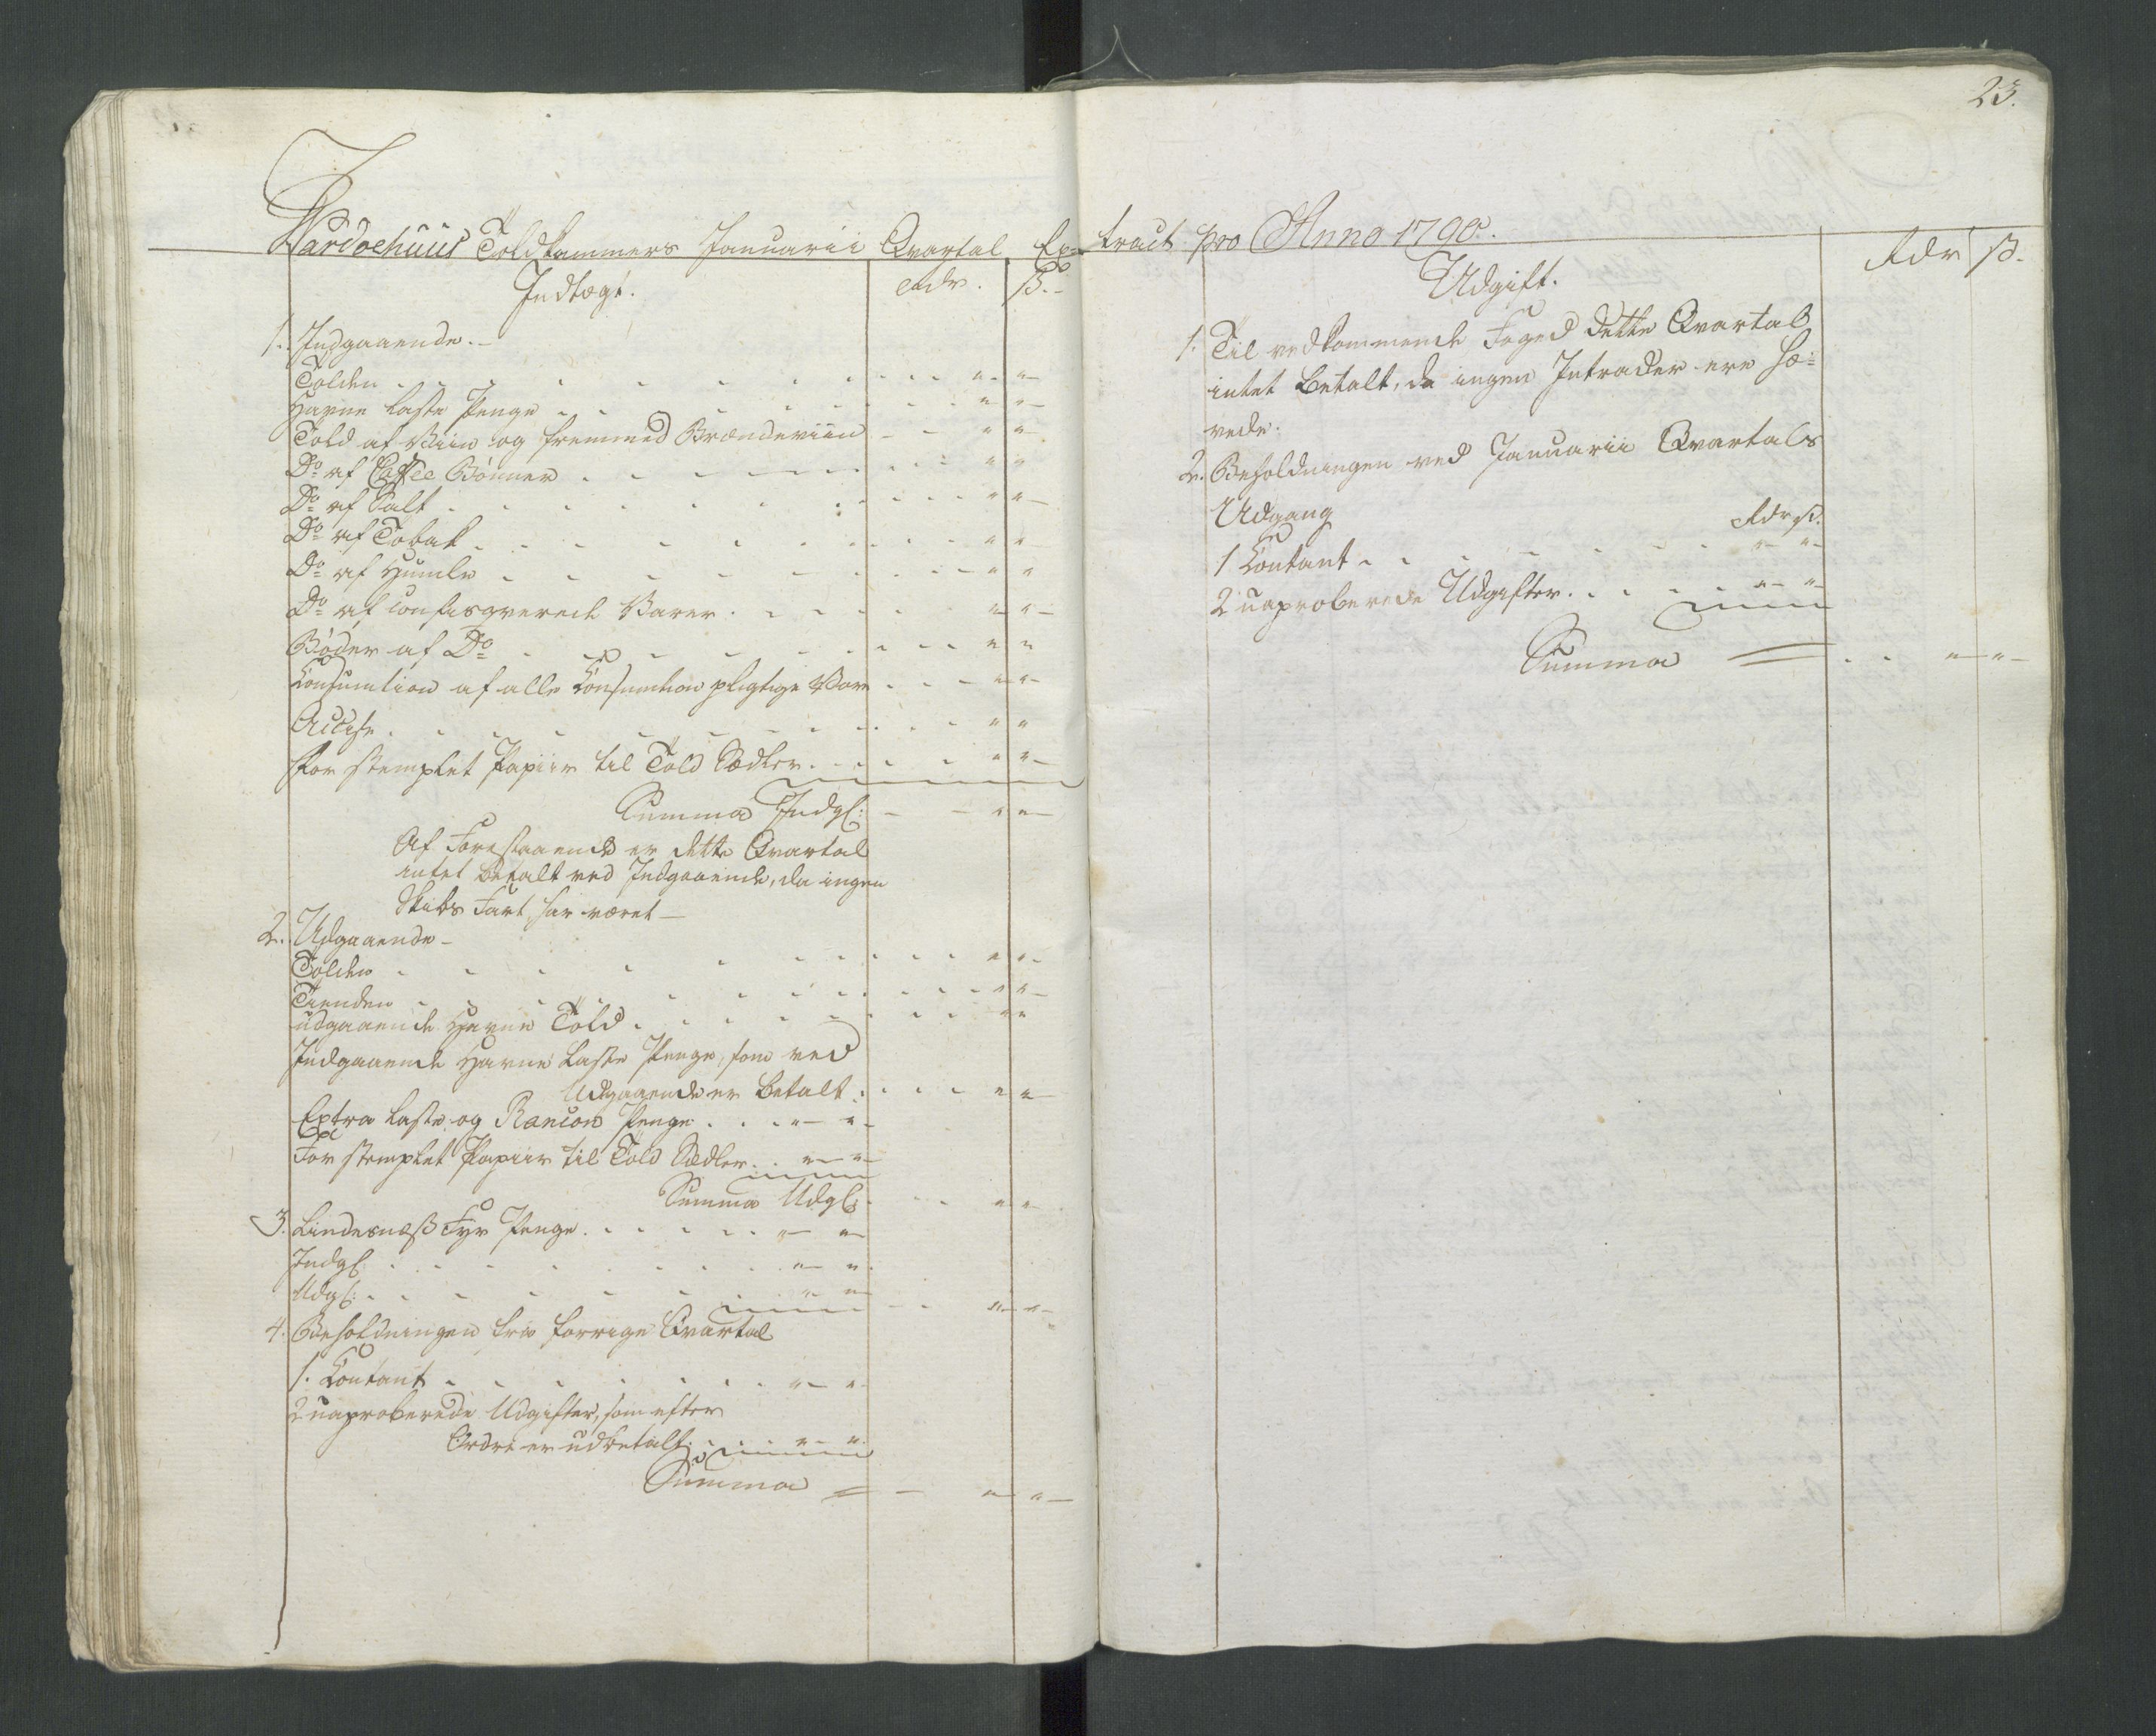 23.
Wardoehuus Toldkammers Januarii Qvartal Ex= tract pro Anno 1790.
Indtægt. Rdr. ß.
1. Indgaaende.
Tolden . . . " "
Havne Laste Penge . . . " "
Told af Viin og fremmed Brændeviin - - " "
Do af Caffee Bønner . . . " "
Do af Salt . . . " "
Do af Tobak . . . " "
Do af Humle . . . " "
Do af Confisqverede Varer . . . " "
Bøder af Do . . . " "
Consumtion af alle Consumtion pligtige Vare . . . " "
Accise . . . " "
For stemplet Papiir til Told Sedler . . . " "
Summa Indg: - - " "
Af Forestaaende er dette Qvartal
intet betalt ved Indgaaende, da ingen
Skibs Fart har været -
2. Udgaaende -
Tolden . . . " "
Tienden . . . " "
udgaaende Havne Told . . . " "
Indgaaende Havne Laste Penge, som ved
Udgaaende er betalt . . . " "
Extra Laste og Rancon Penge . . . " "
For stemplet Papiir til Told Sedler . . " "
Summa Udg: . . . " "
3. Lindesnæss Fyr Penge . . . " "
Indg: . . . " "
Udg: . . . " " - . " "
4. Beholdningen fra forrige Qvartal
1. Contant . . . " "
2 uaproberede Udgifter, som efter
Ordre er udbetalt . . . " "
Summa = - " "
Udgift. Rdr ß.
1. Til vedkommende Foged dette Qvartal
intet betalt, da ingen Intrader ere hæ=
vede.
2. Beholdningen ved Januarii Qvartals
Udgang Rdr ß.
1 Contant . . . " "
2 uaproberede Udgifter . . . " "
Summa = . . " "